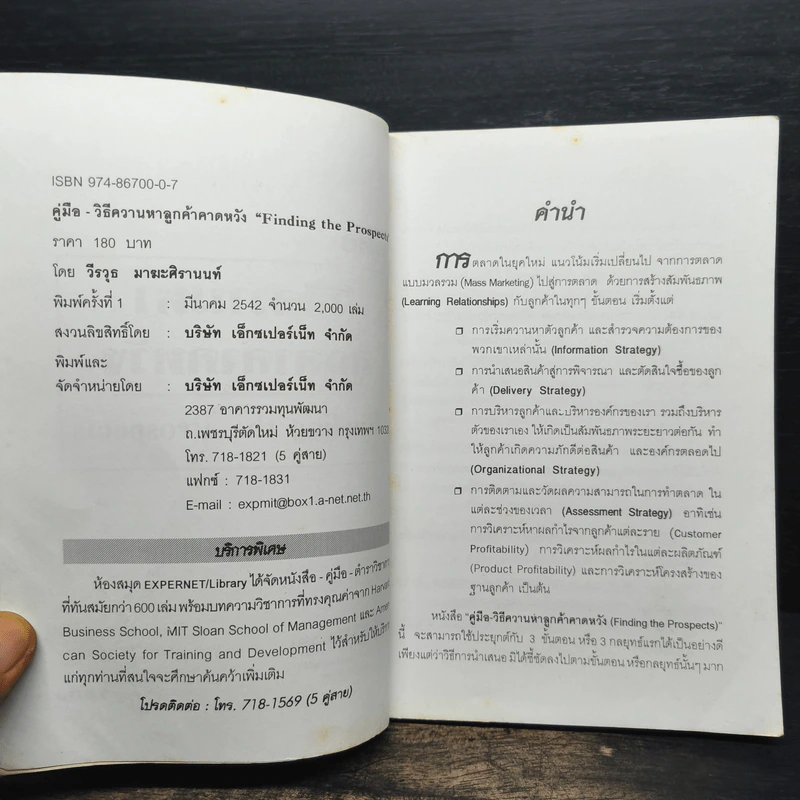 ISBN 974-86700-0-7
คู่มือ - วิธีควานหาลูกค้าคาดหวัง "Finding the Prospects"
ราคา 180 บาท
โดย วีรวุธ มาฆะศิรานนท์
พิมพ์ครั้งที่ 1 : มีนาคม 2542 จำนวน 2,000 เล่ม
สงวนลิขสิทธิ์โดย : บริษัท เอ็กซเปอร์เน็ท จำกัด
พิมพ์และ
จัดจำหน่ายโดย : บริษัท เอ็กซเปอร์เน็ท จำกัด
2387 อาคารรวมทุนพัฒนา
ถ.เพชรบุรีตัดใหม่ ห้วยขวาง กรุงเทพฯ
โทร. 718-1821 (5 คู่สาย)
แฟกซ์ : 718-1831
E-mail : expmit@box1.a-net.net.th
บริการพิเศษ
ห้องสมุด EXPERNET/Library ได้จัดหนังสือ - คู่มือ - ตำราวิชาการ
ที่ทันสมัยกว่า 600 เล่ม พร้อมบทความวิชาการที่ทรงคุณค่าจาก Harvard
Business School, MIT Sloan School of Management และ Ameri
can Society for Training and Development ไว้สำหรับให้บริการ
แก่ทุกท่านที่สนใจจะศึกษาค้นคว้าเพิ่มเติม
โปรดติดต่อ : โทร. 718-1569 (5 คู่สาย)
คำนำ
การตลาดในยุคใหม่ แนวโน้มเริ่มเปลี่ยนไป จากการตลาด
แบบมวลรวม (Mass Marketing) ไปสู่การตลาด ด้วยการสร้างสัมพันธภาพ
(Learning Relationships) กับลูกค้าในทุกๆ ขั้นตอน เริ่มตั้งแต่
❒ การเริ่มควานหาตัวลูกค้า และสำรวจความต้องการของ
พวกเขาเหล่านั้น (Information Strategy)
❒ การนำเสนอสินค้าสู่การพิจารณา และตัดสินใจซื้อของลูก
ค้า (Delivery Strategy)
❒ การบริหารลูกค้าและบริหารองค์กรของเรา รวมถึงบริหาร
ตัวของเราเอง ให้เกิดเป็นสัมพันธภาพระยะยาวต่อกัน ทำ
ให้ลูกค้าเกิดความภักดีต่อสินค้า และองค์กรตลอดไป
(Organizational Strategy)
❒ การติดตามและวัดผลความสามารถในการทำตลาด ใน
แต่ละช่วงของเวลา (Assessment Strategy) อาทิเช่น
การวิเคราะห์หาผลกำไรจากลูกค้าแต่ละราย (Customer
Profitability) การวิเคราะห์ผลกำไรในแต่ละผลิตภัณฑ์
(Product Profitability) และการวิเคราะห์โครงสร้างของ
ฐานลูกค้า เป็นต้น
หนังสือ "คู่มือ-วิธีควานหาลูกค้าคาดหวัง (Finding the Prospects)"
นี้ จะสามารถใช้ประยุกต์กับ 3 ขั้นตอน หรือ 3 กลยุทธ์แรกได้เป็นอย่างดี
เพียงแต่ว่าวิธีการนำเสนอ มิได้ชี้ชัดลงไปตามขั้นตอน หรือกลยุทธ์นั้นๆ มาก